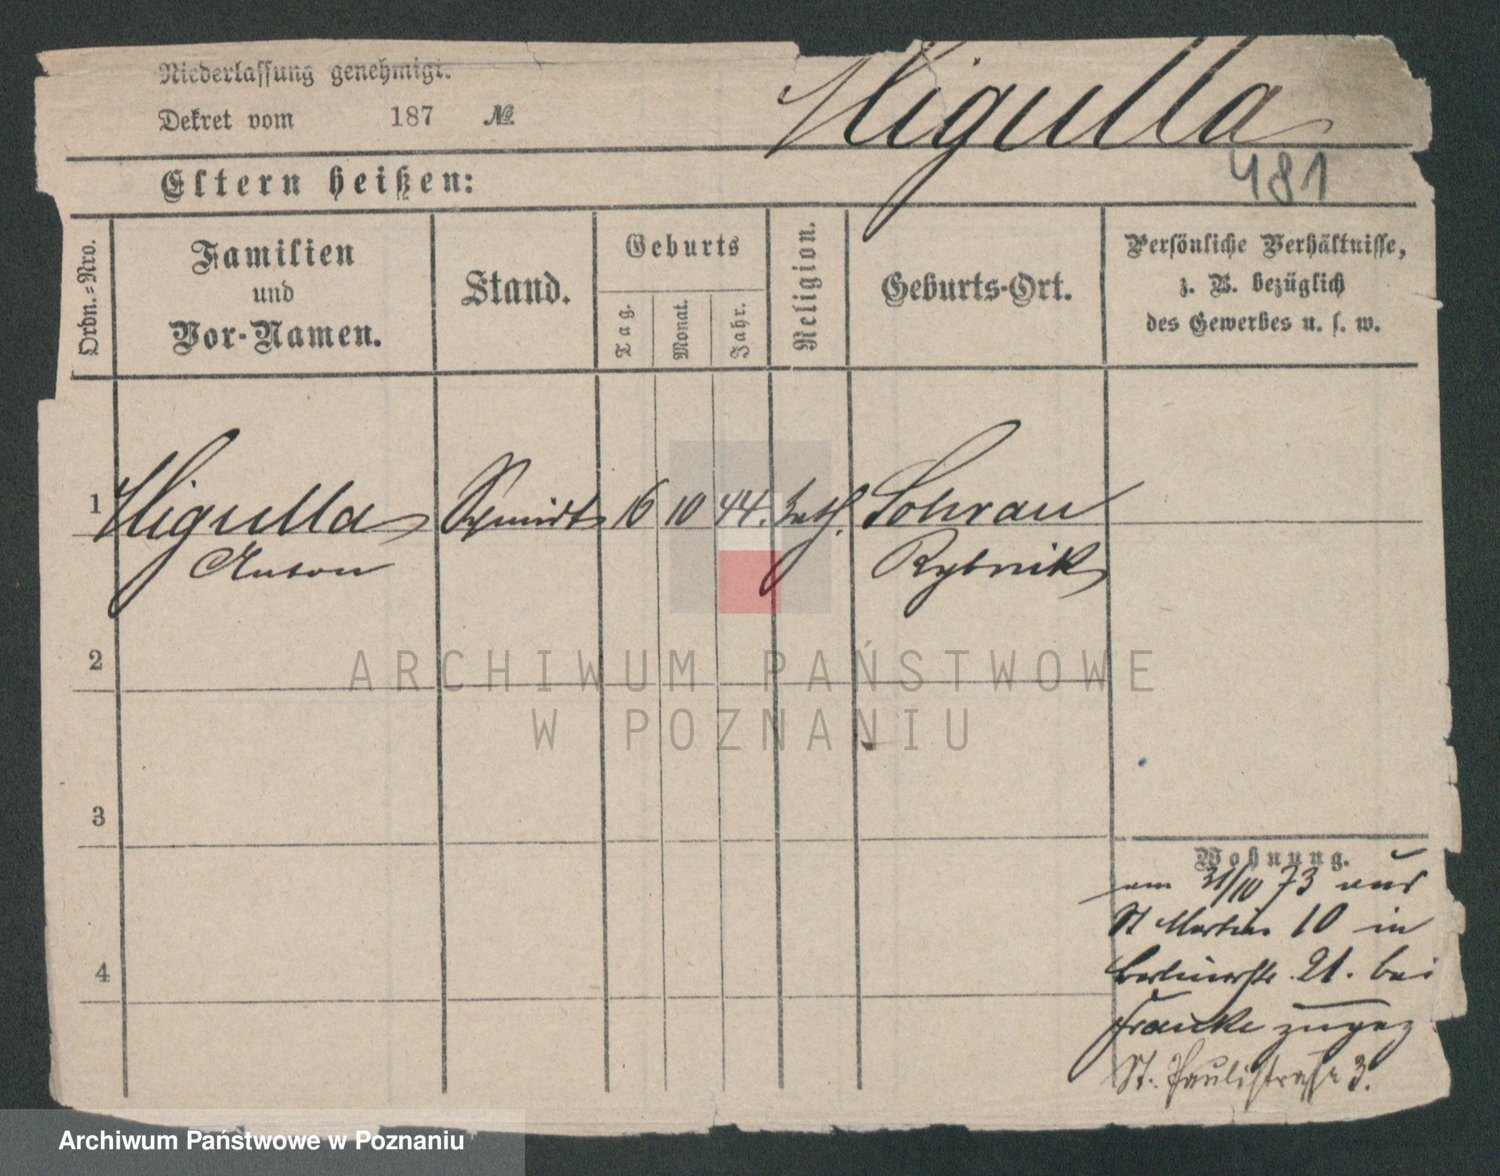 Niederlassung genehmigt.
Dekret vom 187 №
Higulla
481
Eltern heißen:
Ordn.-Nro.
Familien
und
Vor-Namen.
Stand.
Geburts
Tag.
Monat.
Jahr.
Religion.
Geburts-Ort.
Persönliche Verhältnisse,
z. B. bezüglich
des Gewerbes u. s. w.
1 Higulla 16 10 44. kath. Sohrau
Anton Rybnik
2
ARCHIWUM PAŃSTWOWE
W POZNANIU
3
Wohnung.
am 31/10 73 aus
St Martin 10 in
Berlinerstr. 21. bei
4
Franke zugez
St. Paulistraße 3.
Archiwum Państwowe w Poznaniu